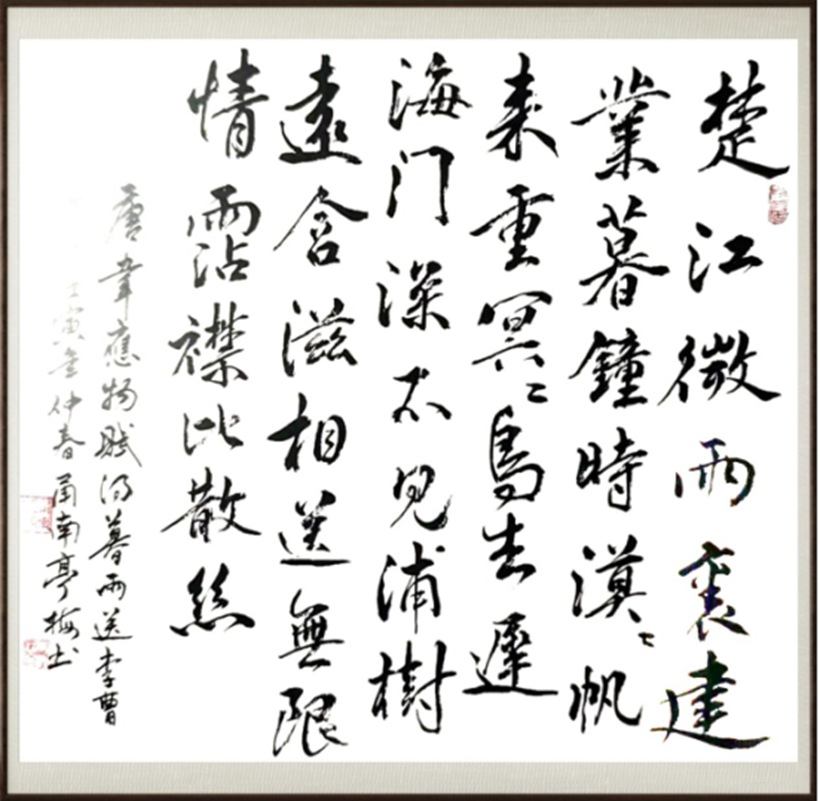 楚江微雨裏建
業暮鐘時漠〻帆
来重冥〻鳥去遲
海门深不見浦樹
遠含滋相送無限
情雨沾襟比散絲
唐韋應物賦得暮雨送李曹
壬寅年仲春 南亭 梅书